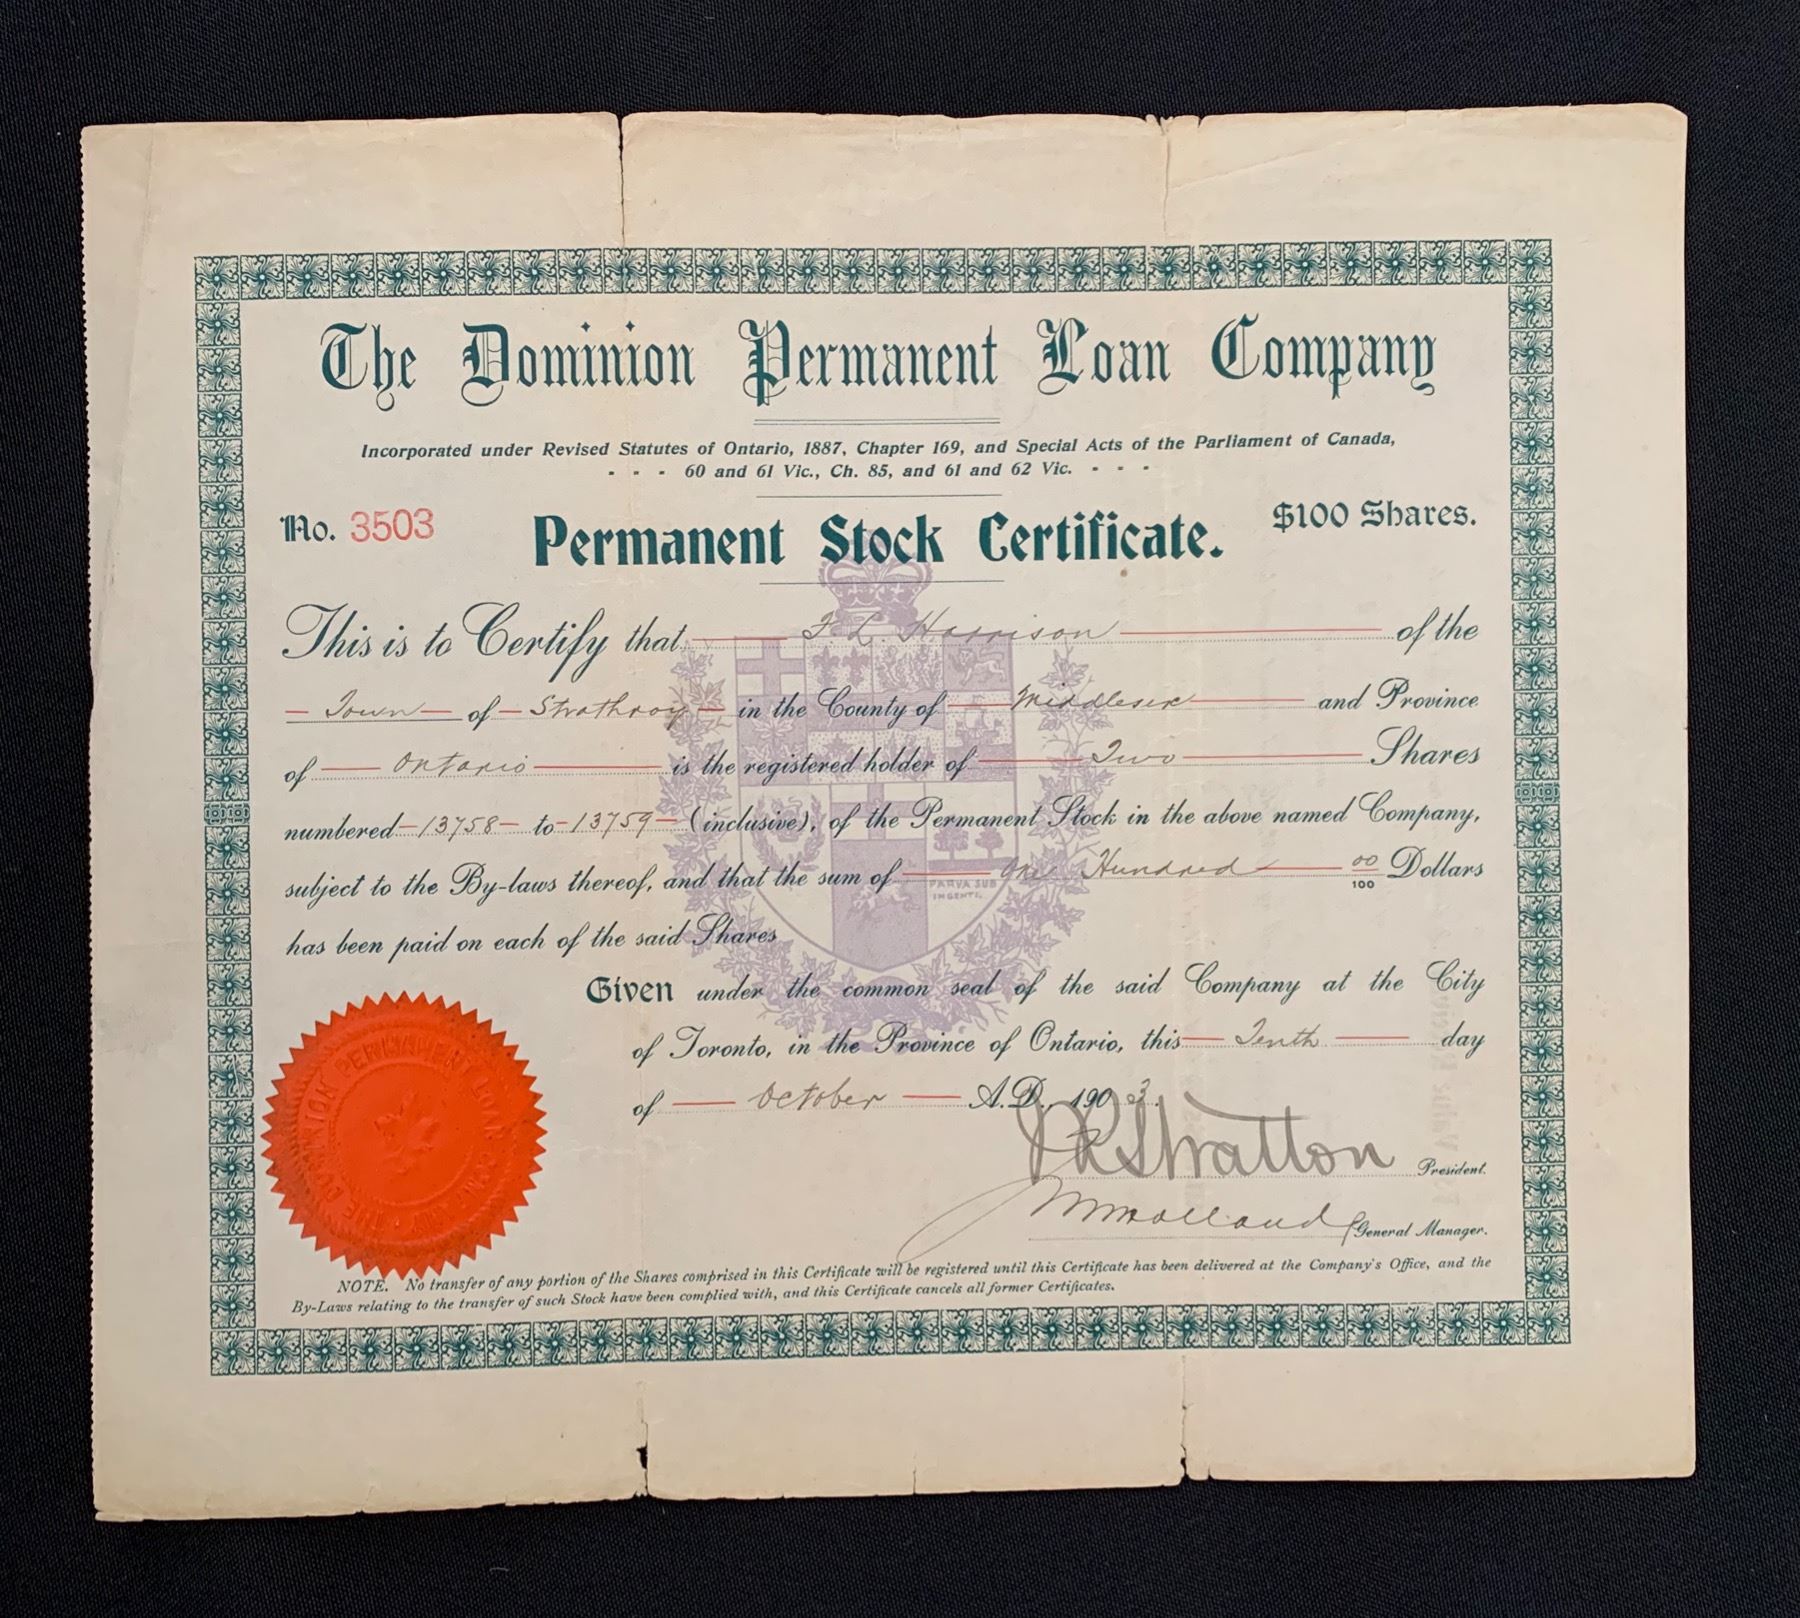 The Dominion Permanent Loan Company
Incorporated under Revised Statutes of Ontario, 1887, Chapter 169, and Special Acts of the Parliament of Canada,
- - - 60 and 61 Vic., Ch. 85, and 61 and 62 Vic. - - -
No. 3503
$100 Shares.
Permanent Stock Certificate.
This is to Certify that F L. Harrison of the
Town of Strathroy in the County of Middlesex and Province
of Ontario is the registered holder of Two Shares
numbered 13758 to 13759 (inclusive), of the Permanent Stock in the above named Company,
subject to the By-laws thereof, and that the sum of One Hundred 00/100 Dollars
PARVA SUB
INGENTI.
has been paid on each of the said Shares
Given under the common seal of the said Company at the City
of Toronto, in the Province of Ontario, this Tenth day
of October A.D., 1903.
THE DOMINION PERMANENT LOAN COMPANY
JR Stratton President.
Holland General Manager.
NOTE. No transfer of any portion of the Shares comprised in this Certificate will be registered until this Certificate has been delivered at the Company's Office, and the
By-Laws relating to the transfer of such Stock have been complied with, and this Certificate cancels all former Certificates.